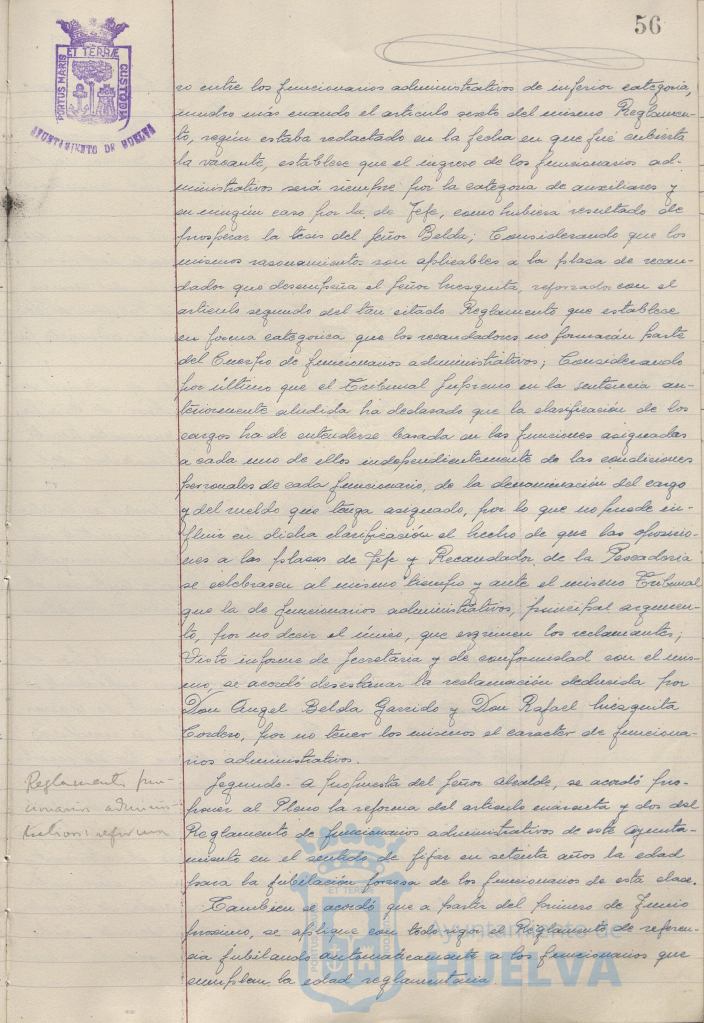 56
PORTUS MARIS ET TERRÆ CUSTODIA
AYUNTAMIENTO DE HUELVA
ro entre los funcionarios administrativos de inferior categoria,
mucho más cuando el articulo sexto del mismo Reglamen-
to, según estaba redactado en la fecha en que fué cubierta
la vacante, establece que el ingreso de los funcionarios ad-
ministrativos será siempre por la categoria de auxiliares y
en ningún caso por la de Jefe, como hubiera resultado de
prosperar la tesis del Señor Belda; Considerando que los
mismos rasonamientos son aplicables a la plasa de recau-
dador que desempeña el Señor Mesquita, reforzados con el
articulo segundo del tan citado Reglamento que establece
en forma categorica que los recaudadores no formarán parte
del Cuerpo de funcionarios administrativos; Considerando
por último que el Tribunal Supremo en la sentencia an-
teriormente aludida ha declarado que la clasificación de los
cargos ha de entenderse basada en las funciones asignadas
a cada uno de ellos independientemente de las condiciones
personales de cada funcionario, de la denominación del cargo
y del sueldo que tenga asignado, por lo que no puede in-
fluir en dicha clasificación el hecho de que las oposicio-
nes a las plasas de Jefe y Recaudador de la Pescaderia
se celebrasen al mismo tiempo y ante el mismo Tribunal
que la de funcionarios administrativos, principal argumen-
to, por no decir el único, que esgrimen los reclamantes;
Visto informe de Secretaria y de conformidad con el mis-
mo, se acordó desestimar la reclamación deducida por
Don Angel Belda Garrido y Don Rafael Mesquita
Cordero, por no tener los mismos el caracter de funciona-
rios administrativos.
Reglamento fun-
cionarios adminis-
trativos: reforma
Segundo.- A propuesta del Señor Alcalde, se acordó pro-
poner al Pleno la reforma del articulo cuarenta y dos del
Reglamento de funcionarios administrativos de este ayunta-
miento en el sentido de fijar en setenta años la edad
para la jubilación forzosa de los funcionarios de esta clase.
Tambien se acordó que a partir del primero de Junio
proximo, se aplique con todo rigor el Reglamento de referen-
cia jubilando automaticamente a los funcionarios que
cumplan la edad reglamentaria.
Ayuntamiento de
HUELVA